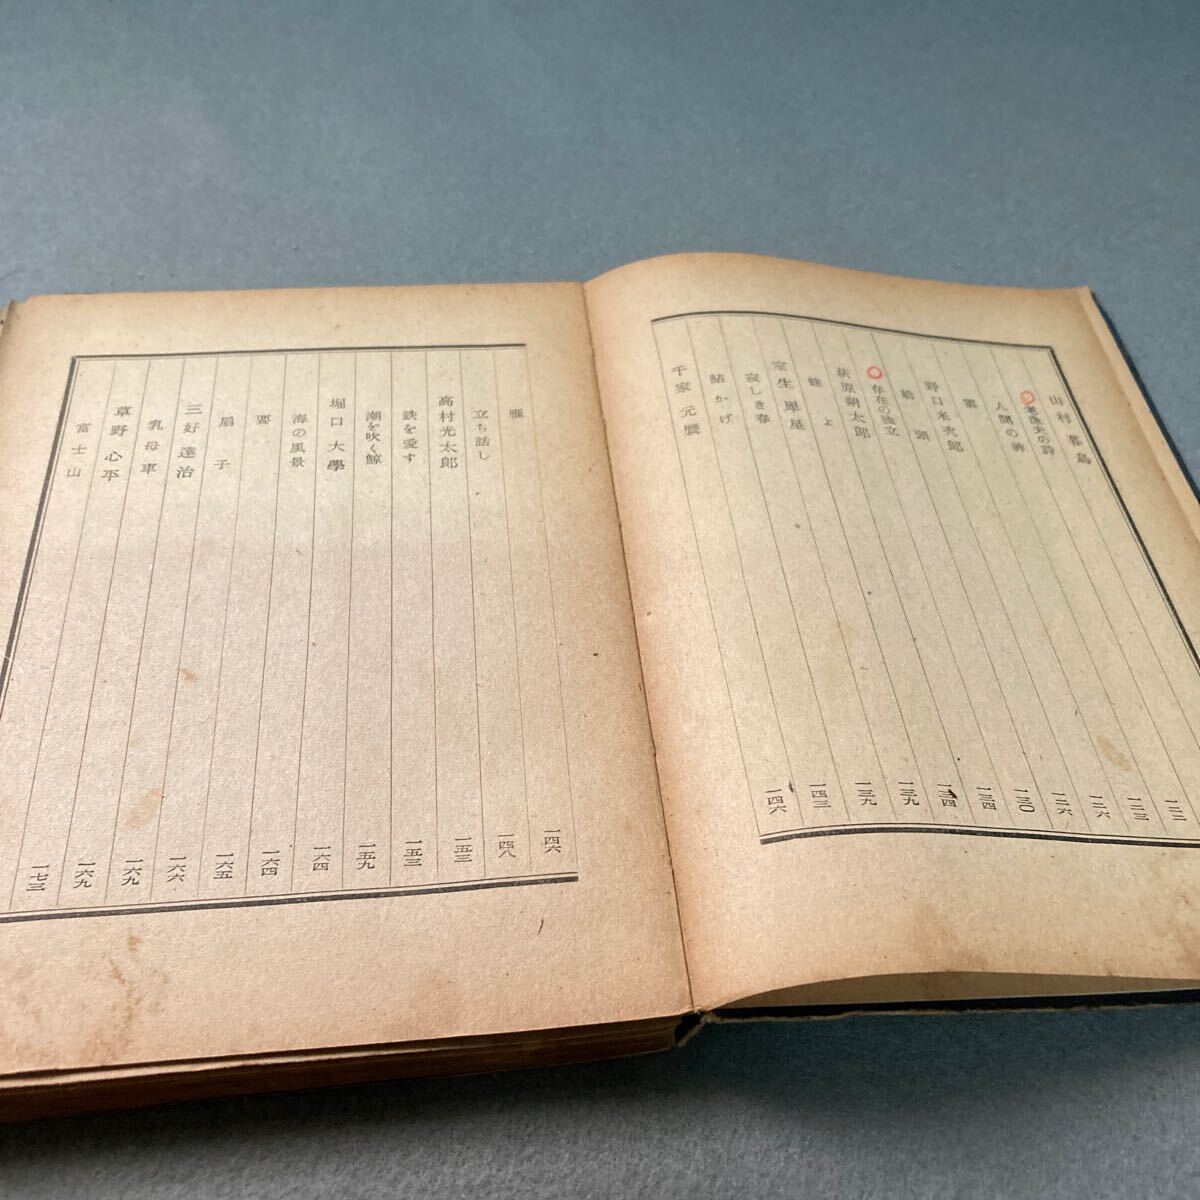 山村暮鳥
老漁夫の詩
人間の神 一二二
雲 一二三
野口米次郎 一二六
船頭 一二六
存在の独立 一三〇
萩原朔太郎 一三四
蛙よ 一三四
室生犀星 一三九
寂しき春 一三九
鮎かげ 一四三
千家元麿 一四六
雁 一四六
立ち話し 一四八
高村光太郎 一五三
鉄を愛す 一五三
潮を吹く鯨 一五九
堀口大學 一六四
海の風景 一六四
一六五
扇子 一六六
三好達治 一六九
乳母車 一六九
草野心平 一七三
富士山